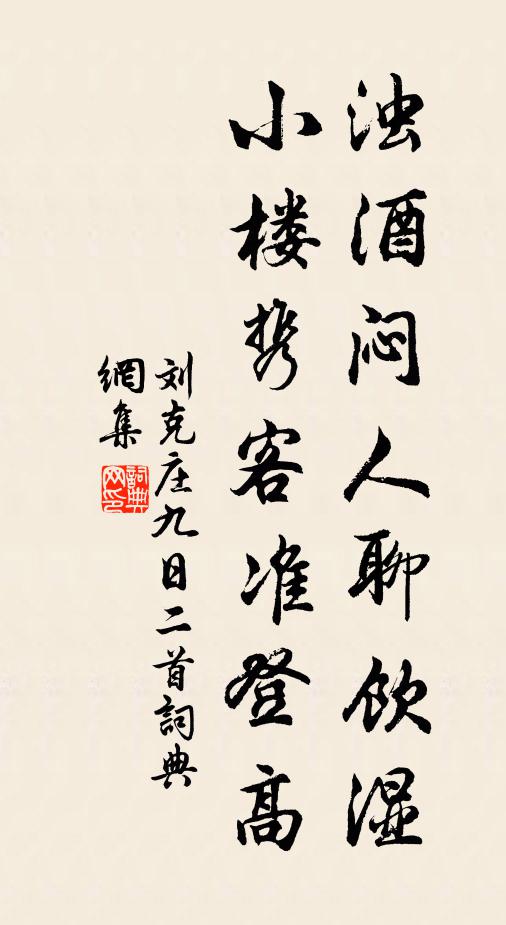 浊酒闷人聊饮湿
小楼携客准登高
刘克庄九日二首詞典
網集
詞典网印